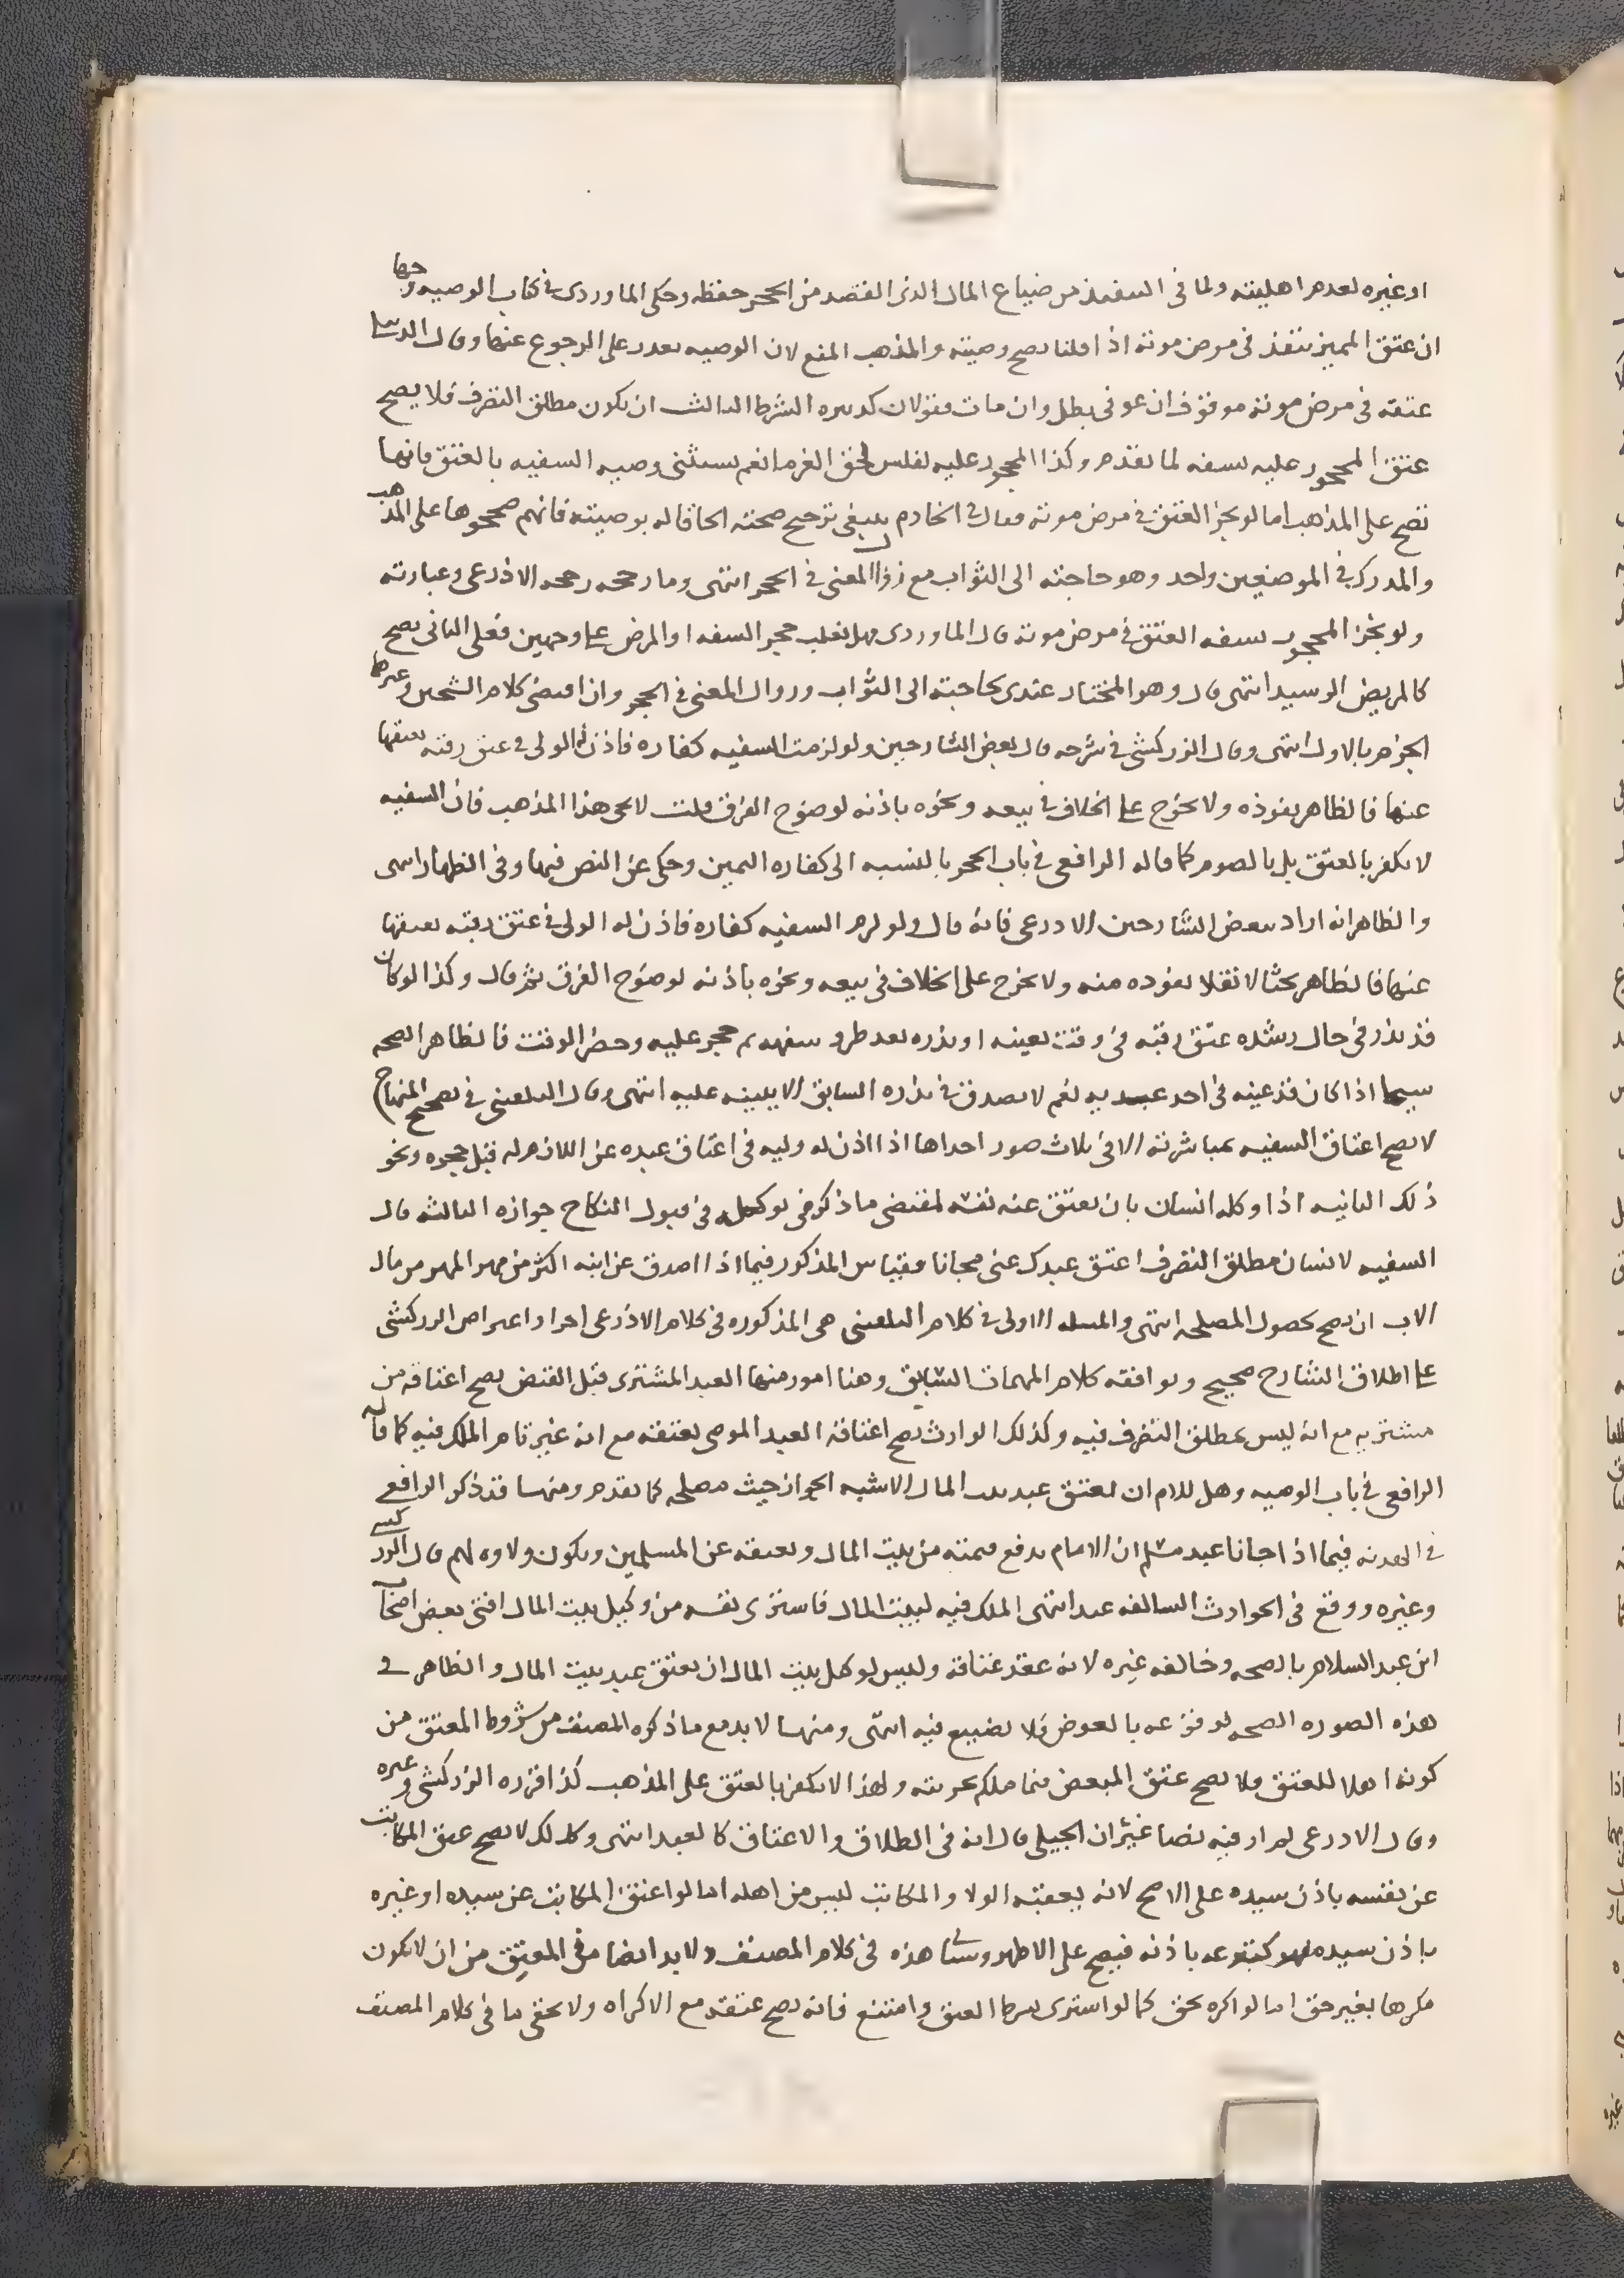 او غيره لعدم اهليته ولما في التنفيذ من ضياع المال الذي القصد من الحجر حفظه وحكى الماوردي في كتاب الوصيه وجها
ان عتق المميز ينفذ في مرض موته اذا قلنا يصح وصيته والمذهب المنع لان الوصيه يقدر على الرجوع عنها وقال
عتقه في مرض موته موقوف ان عوفي بطل وان مات فقولان كتدبيره الشرط الثالث ان يكون مطلق التصرف فلا يصح
عتق المحجور عليه بسفه لما تقدم وكذا المحجور عليه بفلس لحق الغرما نعم يستثنى وصيه السفيه بالعتق فانها
تصح على المذهب اما لو نجز العتق في مرض موته فقال في الخادم ينبغي ترجيح صحته الحاقا له بوصيته فانهم صححوها على المذهب
والمدرك في الموضعين واحد وهو حاجته الى الثواب مع زوال المعنى في الحجر انتهى وما رجحه رجحه الاذرعي وعبارته
ولو نجز المحجور بسفه العتق في مرض موته قال الماوردي فهل يغلب حجر السفه او المرض على وجهين فعلى الثاني يصح
كالمريض الرشيد انتهى قال وهو المختار عندي لحاجته الى الثواب وزوال المعنى في الحجر وان اقتضى كلام الشيخين وغيرهما
الجزم بالاول انتهى وقال الزركشي في شرحه قال بعض الشارحين ولو لزمت السفيه كفاره فاذن له الولي في عتق رقبه يعتقها
عنها فالظاهر نفوذه ولا يخرج على الخلاف في بيعه ونحوه باذنه لوضوح الفرق قلت لا يجي هذا المذهب فان السفيه
لا يكفر بالعتق بل بالصوم كما قاله الرافعي في باب الحجر بالنسبه الى كفاره اليمين وحكى عن النص فيها وفي الظهار انتهى
والظاهر انه اراد ببعض الشارحين الاذرعي فانه قال ولو لزم السفيه كفاره فاذن له الولي في عتق رقبه يعتقها
عنها فالظاهر بحثا لا نقلا نفوذه منه ولا يخرج على الخلاف في بيعه ونحوه باذنه لوضوح الفرق ثم قال وكذا لو كان
قد نذر في حال رشده عتق رقبه في وقت بعينه او نذره بعد طرو سفهه ثم حجر عليه وحضر الوقت فالظاهر الصحه
سيما اذا كان قد عينه في احد عبيديه نعم لا يصدق في نذره السابق الا ببينه عليه انتهى وقال البلقيني في تصحيح المنهاج
لا يصح اعتاق السفيه بمباشرته الا في ثلاث صور احداها اذا اذن له وليه في اعتاق عبده عن اللازم له قبل حجره ونحو
ذلك الثانيه اذا وكله انسان بان يعتق عنه نفسه لمقتضى ما ذكر في توكيله في قبول النكاح جوازه الثالثه قال
السفيه لانسان مطلق التصرف اعتق عبدك عني مجانا فقياس المذكور فيما اذا اصدق عن ابنه اكثر من مهر المهر من مال
الاب ان يصح لحصول المصلحه انتهى والمسله الاولى في كلام البلقيني هي المذكوره في كلام الاذرعي اخرا واعتراض الزركشي
على اطلاق الشارح صحيح ويوافقه كلام المهمات السابق وهنا امور منها العبد المشترى قبل القبض يصح اعتاقه من
مشتريه مع انه ليس بمطلق التصرف فيه وكذلك الوارث يصح اعتاقه العبد الموصى بعتقه مع انه غير تام الملك فيه كما قاله
الرافعي في باب الوصيه وهل للامام ان يعتق عبد بيت المال الاشبه الجواز حيث مصلحه كما تقدم ومنها قد ذكر الرافعي
في الهدنه فيما اذا جانا عبد مسلم ان الامام يدفع قيمته من بيت المال ويعتقه عن المسلمين ويكون ولاوه لهم قال الزركشي
وغيره ووقع في الحوادث السالفه عبد انتهى الملك فيه لبيت المال فاشترى نفسه من وكيل بيت المال افتى بعض اصحاب
ابن عبد السلام بالصحه وخالفه غيره لانه عقد عتاقه وليس لوكيل بيت المال ان يعتق عبد بيت المال والظاهر في
هذه الصوره الصحه لوقوعه بالعوض فلا تضييع فيه انتهى ومنها لا بد مع ما ذكره المصنف من شروط المعتق من
كونه اهلا للعتق فلا يصح عتق المبعض فيما ملكه بحريته ولهذا لا يكفر بالعتق على المذهب كذا قرره الزركشي وغيره
وقال الاذرعي لم ار فيه نصا غير ان الجيلي قال انه في الطلاق والاعتاق كالعبد انتهى وكذلك لا يصح عتق المكاتب
عن نفسه باذن سيده على الاصح لانه يعقبه الولا والمكاتب ليس من اهله اما لو اعتق المكاتب عن سيده او غيره
باذن سيده فهو كتبرعه باذنه فيصح على الاظهر وستاتي هذه في كلام المصنف ولا بد ايضا في المعتق من ان لا يكون
مكرها بغير حق اما لو اكره بحق كما لو اشترى بشرط العتق وامتنع فانه يصح عتقه مع الاكراه ولا يخفى ما في كلام المصنف